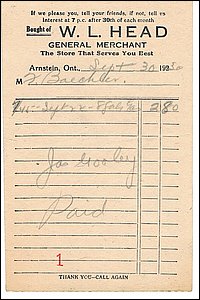 If we please you, tell your friends, if not, tell us
interest at 7 p.c. after 30th of each month
Bought of W. L. HEAD
GENERAL MERCHANT
The Store That Serves You Best
Arnstein, Ont., Sept 30 193
M
Sept 2 2 80
Paid
1
THANK YOU—CALL AGAIN